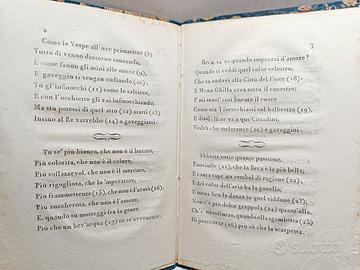 2
Come le Vespe all'uve primaticce (8)
Tutto dì vanno dintorno ronzando,
E come fanno gli asini alle micce (9),
E' gaveggin ti vengan codiando (10).
Tu gl'infinocchi (11) come le salsicce,
E con l'occhietto gli vai infinocchiando,
Ma stu potessi di quel (12) atarti (13)
Insino al Re varrebbe (14) a gaveggiarti.
Tu se' più bianca, che non è il bucato,
Più colorita, che non è il colore,
Più sollazzevol, che non è il mercato,
Più rigogliosa, che lo 'mperatore,
Più frammettente (15), che non è l'arato (16),
Più zuccherosa, che non è amore,
E, quando tu motteggi fra la gente,
Più che un bev'acqua (17) tu se' avvenente.
3
Beca, sa' tu quando impazzai d'amore?
Quando ti veddi quel color celestro,
Che tu andavi alla Città del Fiore (18),
E Mona Ghilla avea teco in
I' mi sentii così bucare il cuore
Come se un fornicassi col balbestro (19),
E dissi: là ne va que' Cittadini,
Vedrà che melarance (20) e gaveggini.
Abbiate tutte quante passione,
Fanciulle (21), che la Beca è la più bella;
E canta sur un cembol di ragione (22),
E del color dell'aria ha la gonnella;
E mena ben la danza di ridolone (23),
Non v'è più dolce grappola (24) quant'ella,
Ch'i' m'innalorcai, quando ella sgambotta (25)
Di procacciar (26) più su che la scarpetta.